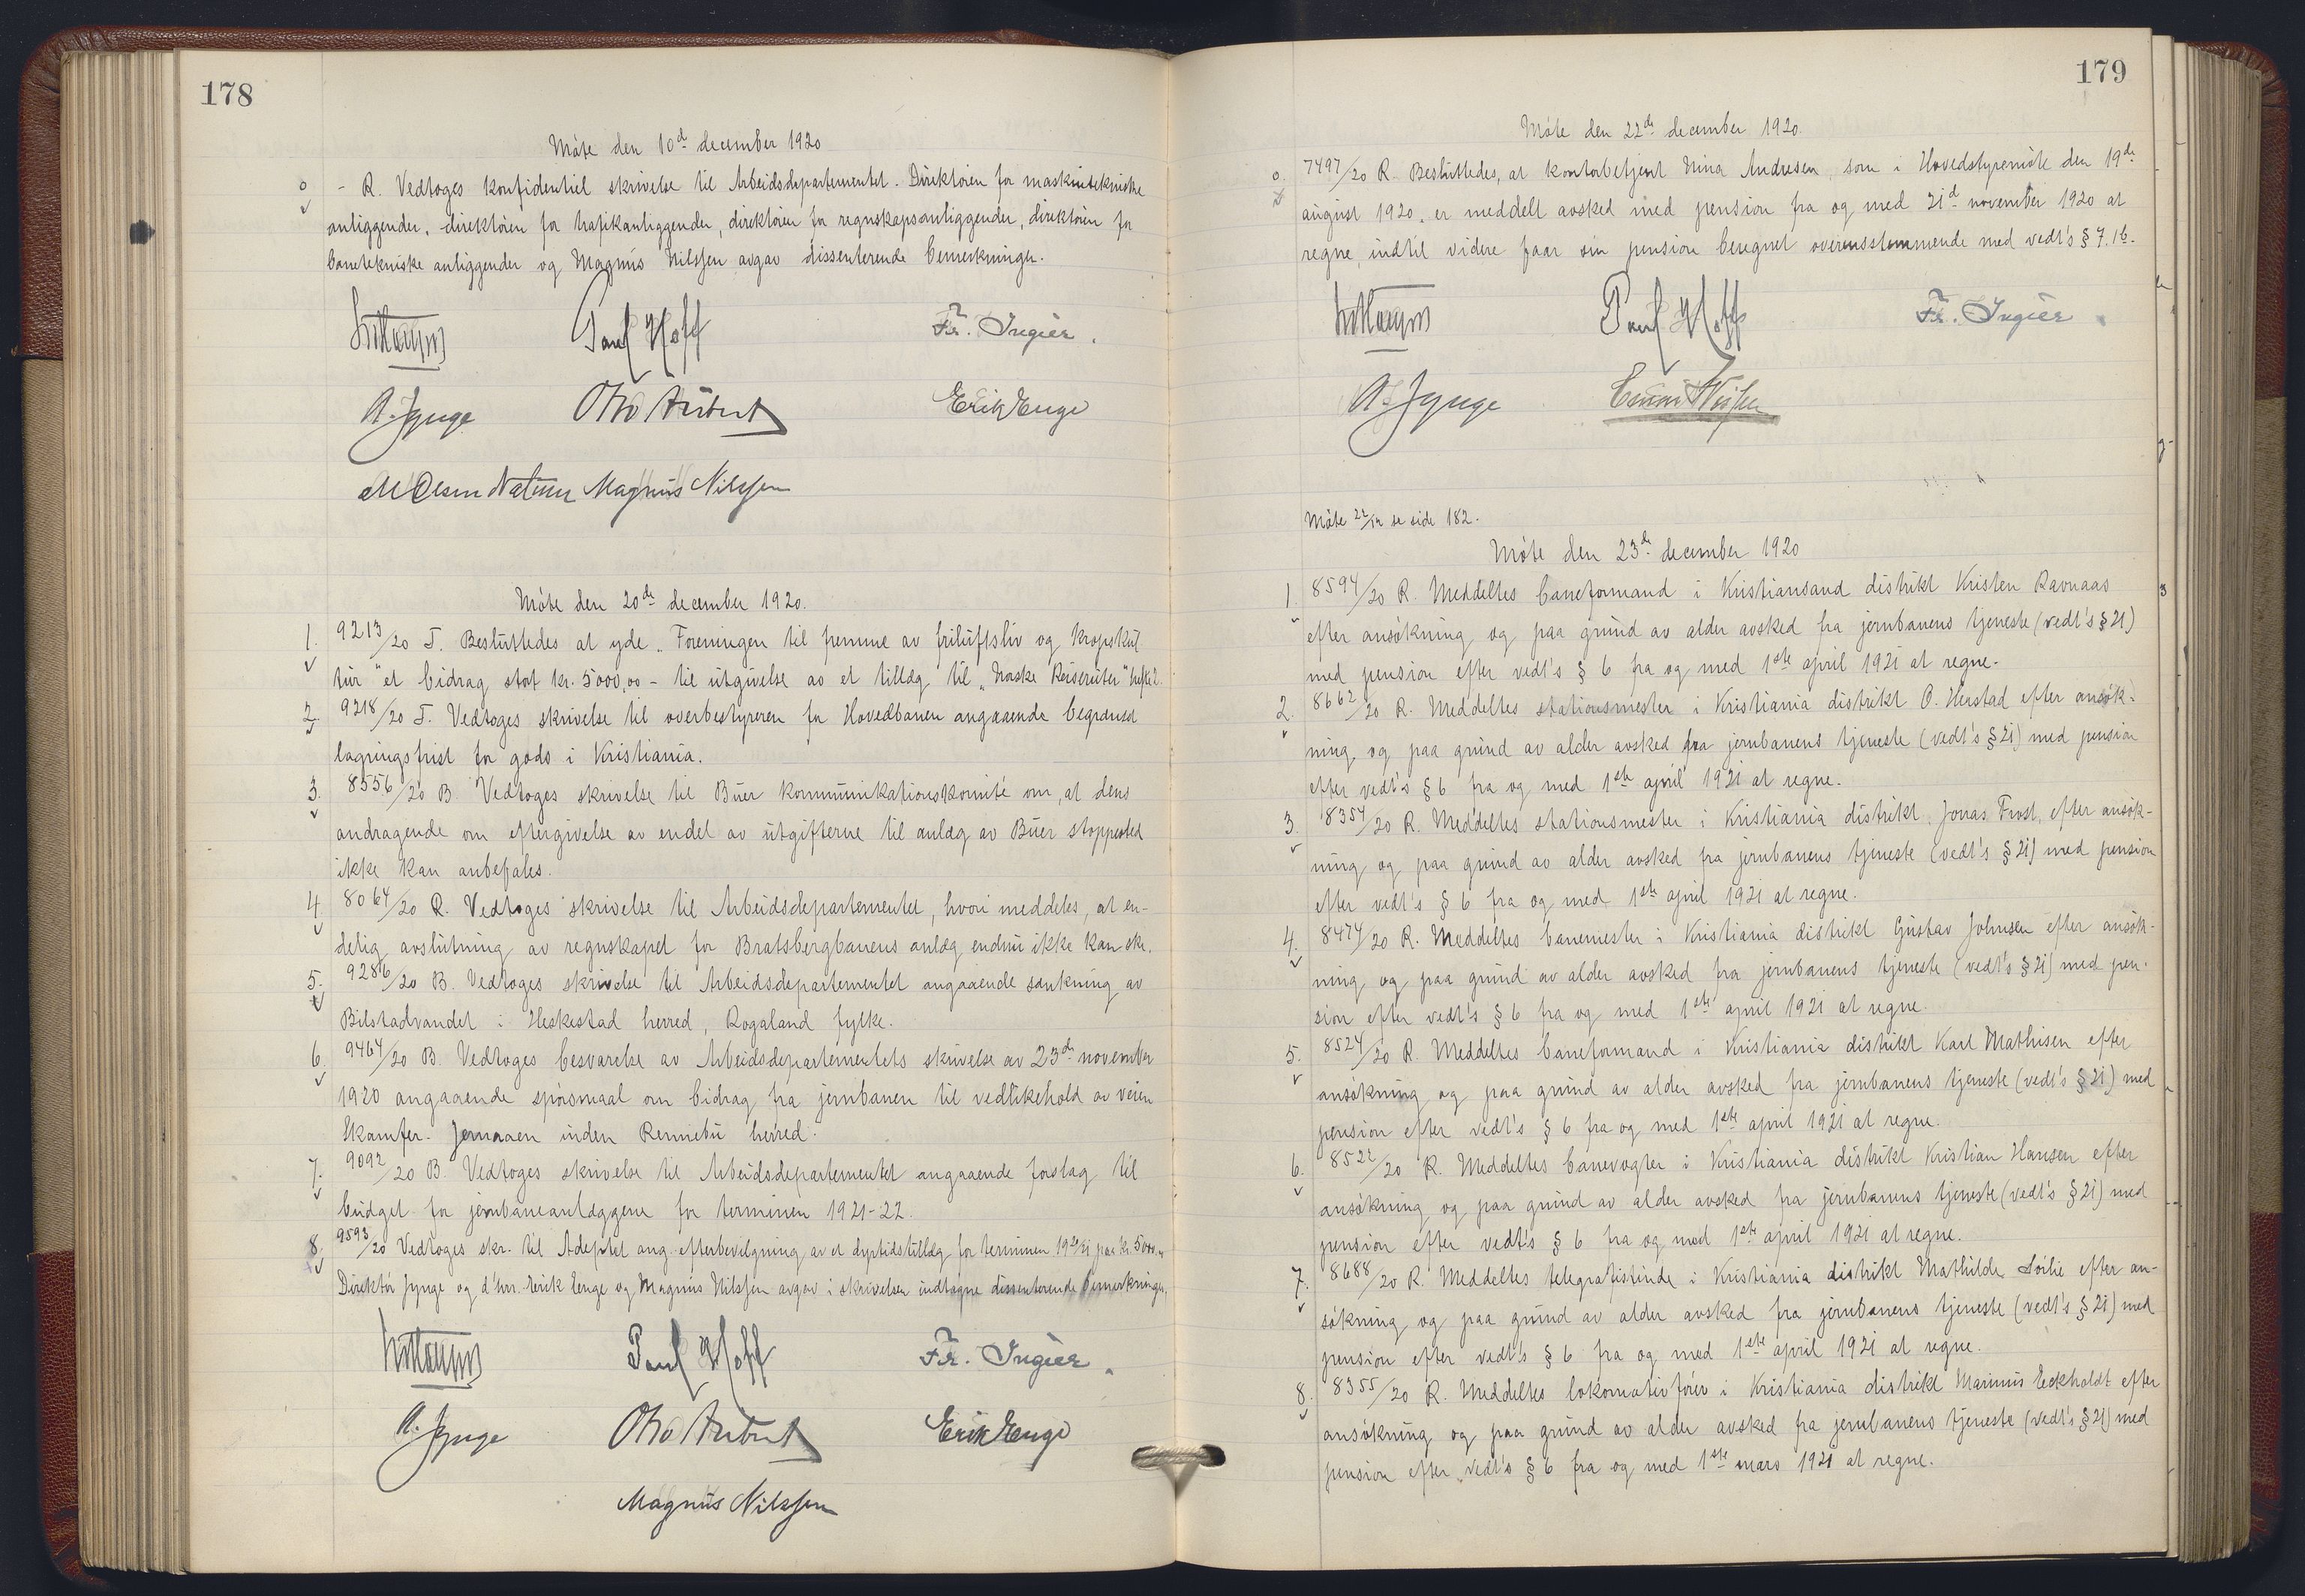 178
Møte den 10d december 1920
o - R. Vedtoges konfidentiel skrivelse til Arbeidsdepartementet. Direktøren for maskintekniske
anliggender, direktøren for trafikanliggender, direktøren for regnskapsanliggender, direktøren for
banetekniske anliggender og Magnus Nilssen avgav dissenterende bemerkninger.
Paul Hoff Fr. Ingier.
A. Jynge Otto Aubert Erik Enge
Magnus Nilssen
Møte den 20de december 1920.
1. 9213/20 T. Besluttedes at yde „Foreningen til fremme av friluftsliv og kropskul-
tur" et bidrag stort kr. 5000,00 - til utgivelse av et tillæg til „Norske Reiseruter" hefte 2.
2. 9218/20 T. Vedtoges skrivelse til overbestyreren for Hovedbanen angaaende begrænset
lagringsfrist for gods i Kristiania.
3. 8556/20 B. Vedtoges skrivelse til Buer kommunikationskomité om, at dens
andragende om eftergivelse av endel av utgifterne til anlæg av Buer stoppested
ikke kan anbefales.
4. 8064/20 R. Vedtoges skrivelse til Arbeidsdepartementet, hvori meddeles, at en-
delig avslutning av regnskapet for Bratsbergbanens anlæg endnu ikke kan ske.
5. 9286/20 B. Vedtoges skrivelse til Arbeidsdepartementet angaaende sænkning av
Bilstadvandet i Heskestad herred, Rogaland fylke.
6. 9464/20 B. Vedtoges besvarelse av Arbeidsdepartementets skrivelse av 23de november
1920 angaaende spørsmaal om bidrag fra jernbanen til vedlikehold av veien
Skamfer - Jernaaen inden Rennebu herred.
7. 9092/20 B. Vedtoges skrivelse til Arbeidsdepartementet angaaende forslag til
budget for jernbaneanlæggene for terminen 1921-22.
8. 9593/20 Vedtoges skr. til Adeptet ang. efterbevilgning av et dyrtidstillæg for terminen 1920/21 paa kr.
Direktør Jynge og d'hrr. Erick Enge og Magnus Nilssen avgav i skrivelsen indtagne dissenterende bemerkninger.
Paul Hoff Fr. Ingier.
A. Jynge Otto Aubert Erik Enge
Magnus Nilssen
179
Møte den 22de december 1920.
o. 7497/20 R. Besluttedes, at kontorbetjent Nina Andresen, som i Hovedstyremøte den 19de
august 1920, er meddelt avsked med pension fra og med 21d november 1920 at
regne, indtil videre faar sin pension beregnet overensstemmende med vedt's § 7. 1b.
Paul Hoff Fr. Ingier
A. Jynge
Møte 22/12 se side 182.
Møte den 23de december 1920
1. 8594/20 R. Meddeltes baneformand i Kristiansand distrikt Kristen Ravnaas
efter ansøkning og paa grund av alder avsked fra jernbanens tjeneste (vedt's § 21)
med pension efter vedt's § 6 fra og med 1ste april 1921 at regne.
2. 8662/20 R. Meddeltes stationsmester i Kristiania distrikt O. Herstad efter ansøk-
ning og paa grund av alder avsked fra jernbanens tjeneste (vedt's § 21) med pension
efter vedt's § 6 fra og med 1ste april 1921 at regne.
3. 8354/20 R. Meddeltes stationsmester i Kristiania distrikt, Jonas Frost, efter ansøk-
ning og paa grund av alder avsked fra jernbanens tjeneste (vedt's § 21) med pension
efter vedt's § 6 fra og med 1ste april 1921 at regne.
4. 8474/20 R. Meddeltes banemester i Kristiania distrikt Gustav Johnsen efter ansøk-
ning og paa grund av alder avsked fra jernbanens tjeneste (vedt's § 21) med pen-
sion efter vedt's § 6 fra og med 1ste april 1921 at regne.
5. 8524/20 R. Meddeltes baneformand i Kristiania distrikt Karl Mathisen efter
ansøkning og paa grund av alder avsked fra jernbanens tjeneste (vedt's § 21) med
pension efter vedt's § 6 fra og med 1ste april 1921 at regne.
6. 8522/20 R. Meddeltes banevogter i Kristiania distrikt Kristian Hansen efter
ansøkning og paa grund av alder avsked fra jernbanens tjeneste (vedt's § 21) med
pension efter vedt's § 6 fra og med 1ste april 1921 at regne.
7. 8688/20 R. Meddeltes telegrafistinde i Kristiania distrikt Mathilde Sørlie efter an-
søkning og paa grund av alder avsked fra jernbanens tjeneste (vedt's § 21) med
pension efter vedt's § 6 fra og med 1ste april 1921 at regne.
8. 8355/20 R. Meddeltes lokomotivfører i Kristiania distrikt Marinius Eckholdt efter
ansøkning og paa grund av alder avsked fra jernbanens tjeneste (vedt's § 21) med
pension efter vedt's § 6 fra og med 1ste mars 1921 at regne.